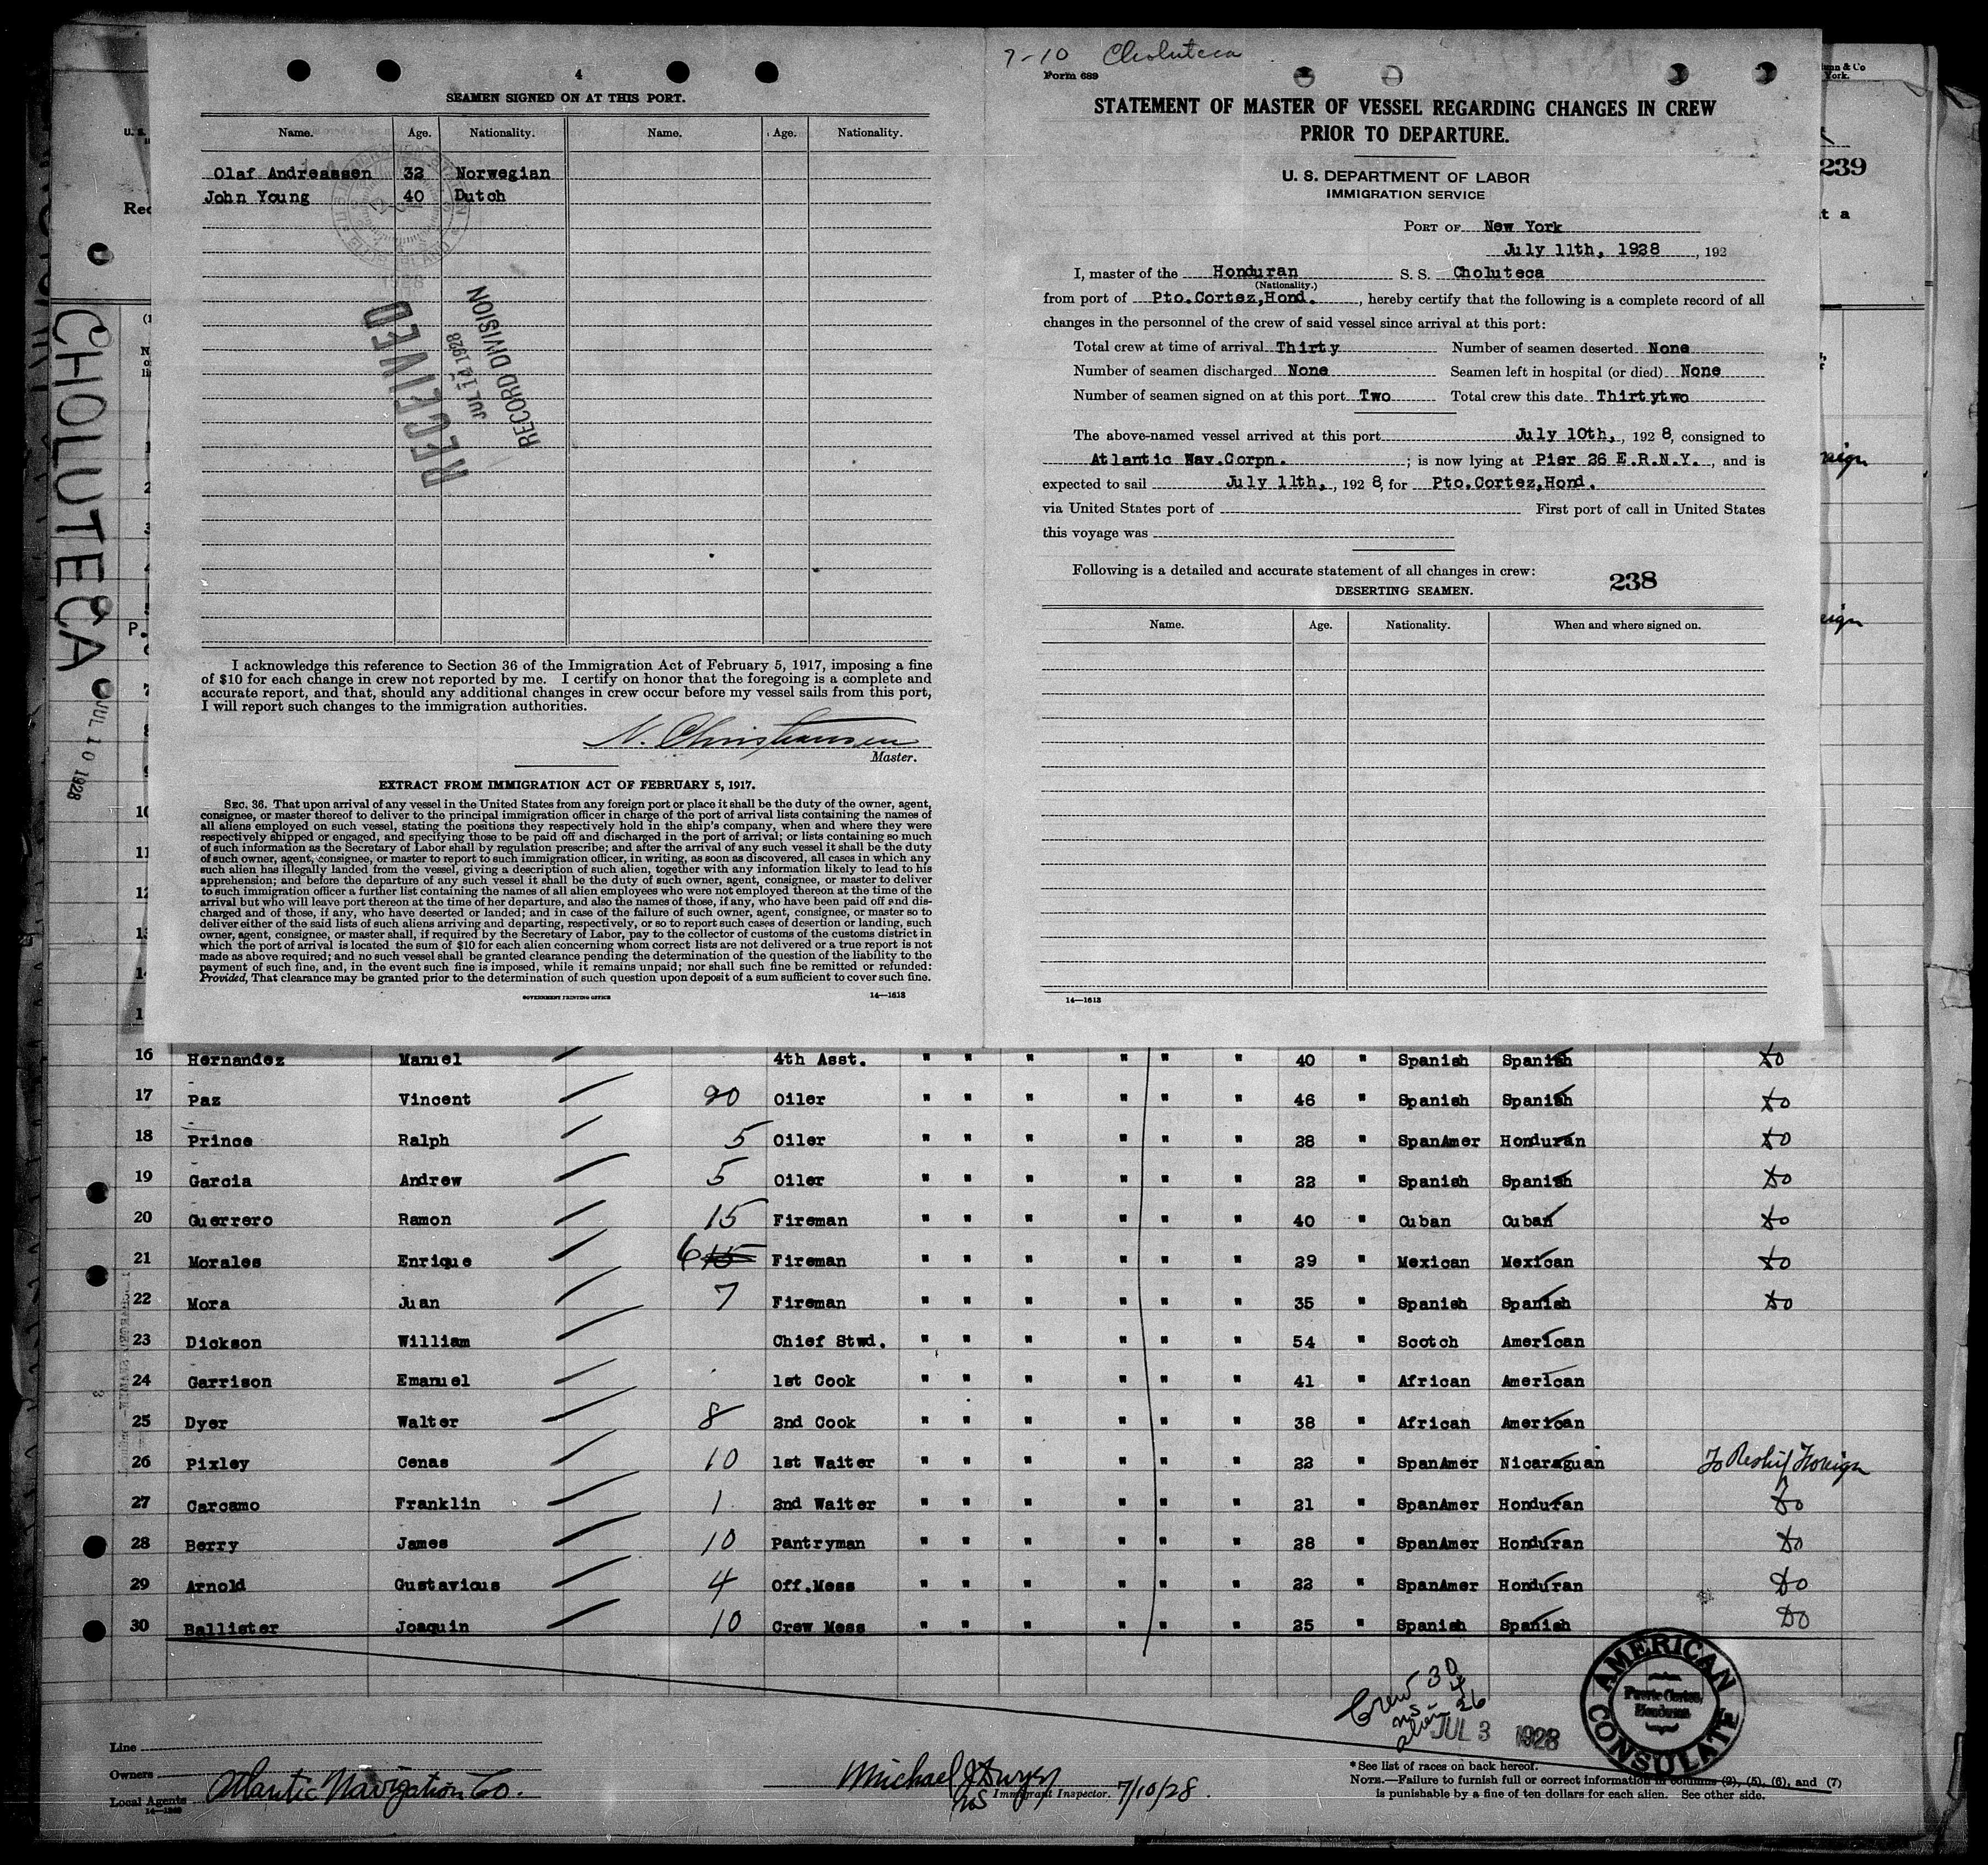 4
SEAMEN SIGNED ON AT THIS PORT.
Name. Age. Nationality. Name. Age. Nationality.
Olaf Andreassen 32 Norwegian
John Young 40 Dutch
1928
RECEIVED
JUL 14 1928
RECORD DIVISION
I acknowledge this reference to Section 36 of the Immigration Act of February 5, 1917, imposing a fine
of $10 for each change in crew not reported by me. I certify on honor that the foregoing is a complete and
accurate report, and that, should any additional changes in crew occur before my vessel sails from this port,
I will report such changes to the immigration authorities.
N. Christiansen
Master.
EXTRACT FROM IMMIGRATION ACT OF FEBRUARY 5, 1917.
SEC. 36. That upon arrival of any vessel in the United States from any foreign port or place it shall be the duty of the owner, agent,
consignee, or master thereof to deliver to the principal immigration officer in charge of the port of arrival lists containing the names of
all aliens employed on such vessel, stating the positions they respectively hold in the ship's company, when and where they were
respectively shipped or engaged, and specifying those to be paid off and discharged in the port of arrival; or lists containing so much
of such information as the Secretary of Labor shall by regulation prescribe; and after the arrival of any such vessel it shall be the duty
of such owner, agent, consignee, or master to report to such immigration officer, in writing, as soon as discovered, all cases in which any
such alien has illegally landed from the vessel, giving a description of such alien, together with any information likely to lead to his
apprehension; and before the departure of any such vessel it shall be the duty of such owner, agent, consignee, or master to deliver
to such immigration officer a further list containing the names of all alien employees who were not employed thereon at the time of the
arrival but who will leave port thereon at the time of her departure, and also the names of those, if any, who have been paid off and dis-
charged and of those, if any, who have deserted or landed; and in case of the failure of such owner, agent, consignee, or master so to
deliver either of the said lists of such aliens arriving and departing, respectively, or so to report such cases of desertion or landing, such
owner, agent, consignee, or master shall, if required by the Secretary of Labor, pay to the collector of customs of the customs district in
which the port of arrival is located the sum of $10 for each alien concerning whom correct lists are not delivered or a true report is not
made as above required; and no such vessel shall be granted clearance pending the determination of the question of the liability to the
payment of such fine, and, in the event such fine is imposed, while it remains unpaid; nor shall such fine be remitted or refunded:
Provided, That clearance may be granted prior to the determination of such question upon deposit of a sum sufficient to cover such fine.
GOVERNMENT PRINTING OFFICE 14—1613
7-10 Choluteca
Form 689
STATEMENT OF MASTER OF VESSEL REGARDING CHANGES IN CREW
PRIOR TO DEPARTURE.
U. S. DEPARTMENT OF LABOR
IMMIGRATION SERVICE
PORT OF New York
July 11th, 1928, 192
I, master of the Honduran S. S. Choluteca
(Nationality.)
from port of Pto.Cortez,Hond., hereby certify that the following is a complete record of all
changes in the personnel of the crew of said vessel since arrival at this port:
Total crew at time of arrival Thirty Number of seamen deserted None
Number of seamen discharged None Seamen left in hospital (or died) None
Number of seamen signed on at this port Two Total crew this date Thirtytwo
The above-named vessel arrived at this port July 10th, , 192 8, consigned to
Atlantic Nav.Corpn. ; is now lying at Pier 26 E.R.N.Y. , and is
expected to sail July 11th, , 192 8, for Pto.Cortez,Hond.
via United States port of First port of call in United States
this voyage was
Following is a detailed and accurate statement of all changes in crew:
238
DESERTING SEAMEN.
Name. Age. Nationality. When and where signed on.
14—1613
239
CHOLUTECA
JUL 10 1928
16 Hernandez Manuel 4th Asst. " " " " " " 40 " Spanish Spanish Do
17 Paz Vincent 20 Oiler " " " " " " 46 " Spanish Spanish Do
18 Prince Ralph 5 Oiler " " " " " " 28 " SpanAmer Honduran Do
19 Garcia Andrew 5 Oiler " " " " " " 22 " Spanish Spanish Do
20 Guerrero Ramon 15 Fireman " " " " " " 40 " Cuban Cuban Do
21 Morales Enrique 6 15 Fireman " " " " " " 29 " Mexican Mexican Do
22 Mora Juan 7 Fireman " " " " " " 35 " Spanish Spanish Do
23 Dickson William Chief Stwd. " " " " " " 54 " Scotch American
24 Garrison Emanuel 1st Cook " " " " " " 41 " African American
25 Dyer Walter 8 2nd Cook " " " " " " 38 " African American
26 Pixley Cenas 10 1st Waiter " " " " " " 22 " SpanAmer Nicaraguan To Reship Foreign
27 Carcamo Franklin 1 2nd Waiter " " " " " " 21 " SpanAmer Honduran Do
28 Berry James 10 Pantryman " " " " " " 28 " SpanAmer Honduran Do
29 Arnold Gustavious 4 Off.Mess " " " " " " 22 " SpanAmer Honduran Do
30 Ballister Joaquin 10 Crew Mess " " " " " " 25 " Spanish Spanish Do
Crew 30
4
alien 26
JUL 3 1928
AMERICAN CONSULATE
Puerto Cortes,
Honduras
Line
Owners
Local Agents Atlantic Navigation Co.
Michael J Dwyer
Immigrant Inspector. 7/10/28.
* See list of races on back hereof.
NOTE.—Failure to furnish full or correct information in columns (2), (5), (6), and (7)
is punishable by a fine of ten dollars for each alien. See other side.